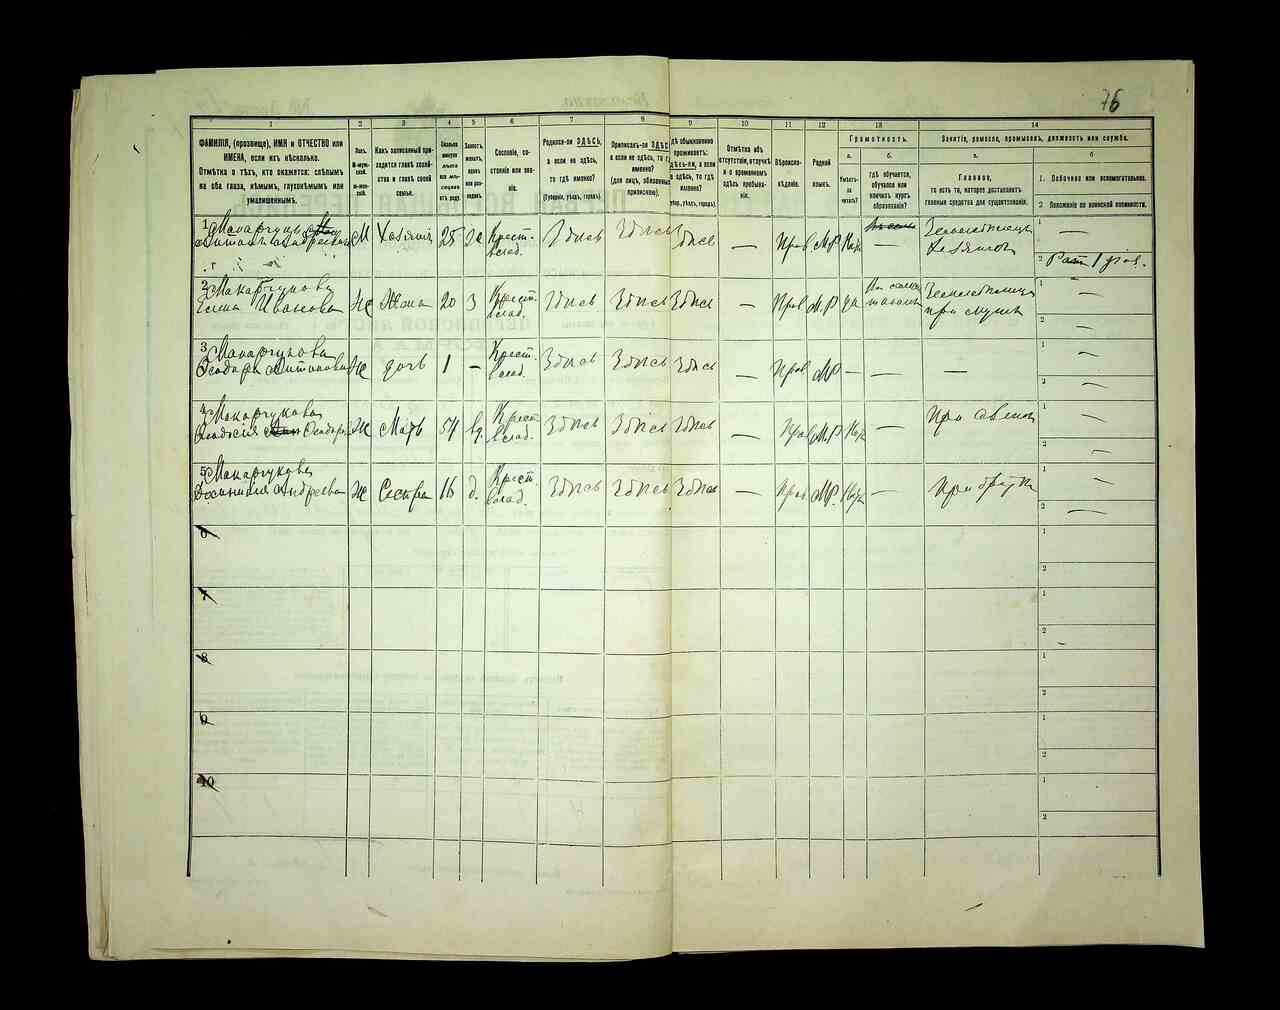 76
1 2 3 4 5 6 7 8 9 10 11 12 13 14
ФАМИЛІЯ, (прозвище), ИМЯ и ОТЧЕСТВО или
ИМЕНА, если ихъ нѣсколько.
Отмѣтка о тѣхъ, кто окажется: слѣпымъ
на оба глаза, нѣмымъ, глухонѣмымъ или
умалишеннымъ.
Полъ.
М-муж-
ской.
Ж-жен-
скій.
Какъ записанный при-
ходится главѣ хозяй-
ства и главѣ своей
семьи.
Сколько
минуло
лѣтъ
или мѣ-
сяцевъ
отъ роду.
Холостъ,
женатъ,
вдовъ
или раз-
веденъ.
Сословіе, со-
стояніе или зва-
ніе.
Родился-ли ЗДѢСЬ,
а если не здѣсь,
то гдѣ именно?
(Губернія, уѣздъ, городъ).
Приписанъ-ли ЗДѢСЬ,
а если не здѣсь, то гдѣ
именно?
(для лицъ, обязанных
припискою).
Гдѣ обыкновенно
проживаетъ:
здѣсь-ли, а если
не здѣсь, то гдѣ
именно?
(Губер., уѣздъ, городъ).
Отмѣтка объ
отсутствіи, отлучкѣ
и о временномъ
здѣсь пребыва-
ніи.
Вѣроиспо-
вѣданіе.
Родной
языкъ.
Грамотность.
а. б.
Умѣетъ-
ли
читать?
гдѣ обучается,
обучался или
кончилъ курсъ
образованія?
Занятіе, ремесло, промыселъ, должность или служба.
а. б
Главное,
то есть то, которое доставляетъ
главныя средства для существованія.
1. Побочное или вспомогательное.
2 Положеніе по воинской повинности.
1 Макарчукъ
Антонъ Андреевъ М Хозяинъ 25 ж Крест. Здѣсь Здѣсь Здѣсь — Прав. М.Р — Земледѣлецъ 1 —
влад. Хозяинъ
2 Рат 1 раз.
2 Макарчукова Ж Жена 20 з Крест. Здѣсь Здѣсь Здѣсь — Прав М.Р да 1 —
Ивановна влад. при мужѣ
2 —
3 Макарчукова Ж дочь 1 — Крест. Здѣсь Здѣсь Здѣсь — Прав М.Р — — — 1 —
Антонова влад.
2 —
4 Макарчукова Ж Мать 54 вд. Крест Здѣсь Здѣсь Здѣсь — Прав М.Р — При сынѣ 1 —
влад.
2 —
5 Макарчукова
Андреева Ж Сестра 16 д. Крест. Здѣсь Здѣсь Здѣсь — Прав М.Р. — При братѣ 1 —
влад.
2 —
6 1
2
7 1
2 —
8 1
2
9 1
2
10 1
2